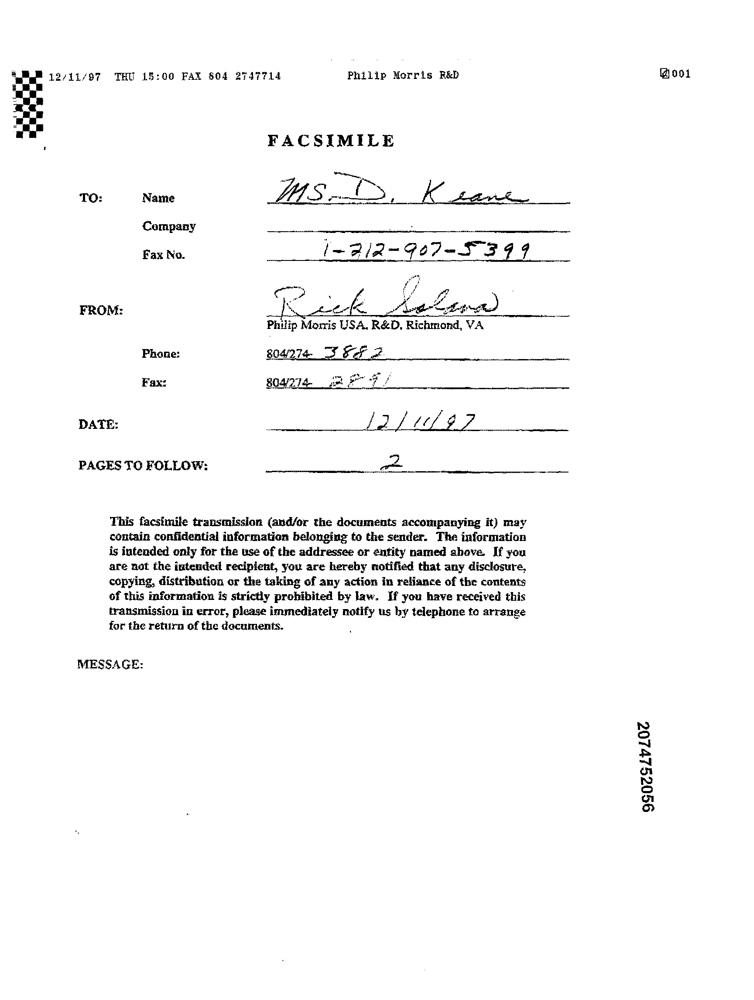 12/11/97 THU 15:00 FAX 804 2747714 Philip Morris R&D 001
FACSIMILE
TO: Name MS. D. Keane
Company
Fax No. 1-212-907-5399
FROM: Rick Solana
Philip Morris USA, R&D, Richmond, VA
Phone: 804/274- 3882
Fax: 804/274- 2891
DATE: 12/11/97
PAGES TO FOLLOW: 2
This facsimile transmission (and/or the documents accompanying it) may
contain confidential information belonging to the sender. The information
is intended only for the use of the addressee or entity named above. If you
are not the intended recipient, you are hereby notified that any disclosure,
copying, distribution or the taking of any action in reliance of the contents
of this information is strictly prohibited by law. If you have received this
transmission in error, please immediately notify us by telephone to arrange
for the return of the documents.
MESSAGE:
2074752056